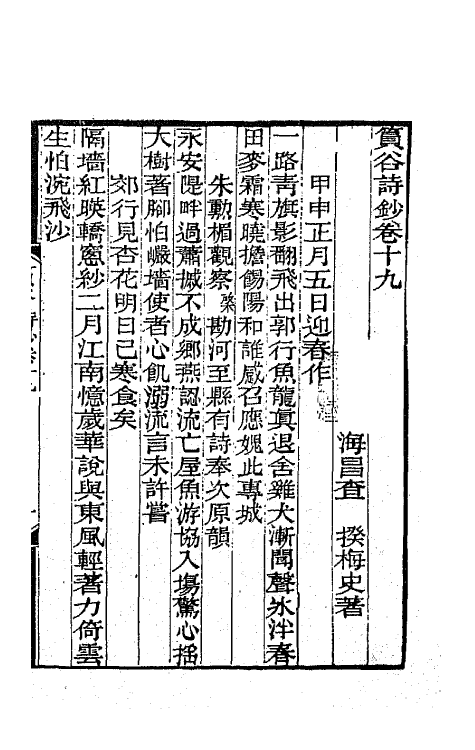 篔谷詩鈔卷十九
海昌查 揆梅史著
甲申正月五日迎春作
一路靑旗影翻飛出郭行魚龍眞退舍雞犬漸聞聲氷泮春
田麥霜寒曉擔餳陽和誰感召應媿此專城
朱勳楣觀察勘河至縣有詩奉次原韻
永安隄畔過蕭摵不成鄉燕認流亡屋魚游協入塲驚心搖
大樹著腳怕巖墻使者心飢溺流言未許嘗
郊行見杏花明日已寒食矣
隔墻紅暎轎窻紗二月江南憶歲華說與東風輕著力倚雲
生怕涴飛沙